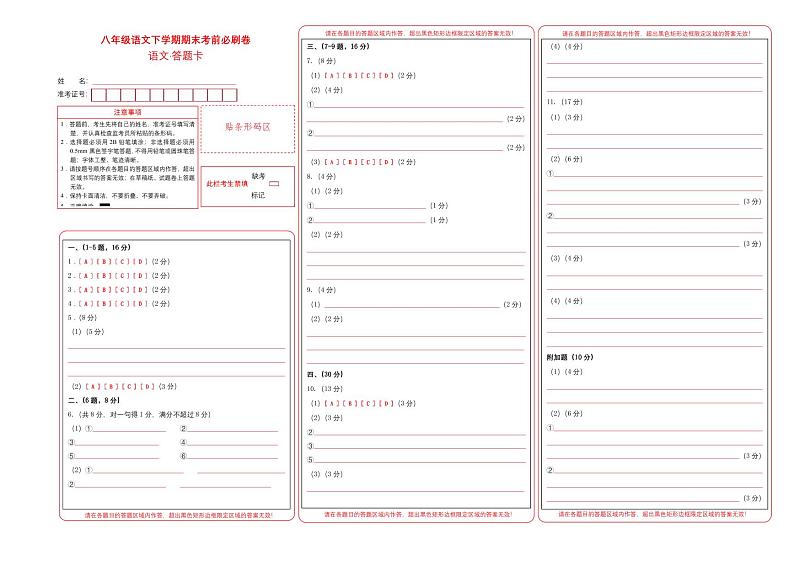 八年级语文下学期期末考前必刷卷
语文·答题卡
姓 名:
准考证号:
注意事项
1．答题前，考生先将自己的姓名，准考证号填写清
楚，并认真检查监考员所粘贴的条形码。
2．选择题必须用 2B 铅笔填涂；非选择题必须用
0.5mm 黑色签字笔答题，不得用铅笔或圆珠笔答
题；字体工整、笔迹清晰。
3．请按题号顺序在各题目的答题区域内作答，超出
区域书写的答案无效；在草稿纸、试题卷上答题
无效。
4．保持卡面清洁，不要折叠、不要弄破。
贴条形码区
此栏考生禁填
缺考
标记
一、(1-5 题，16 分)
1．[ A ] [ B ] [ C ] [ D ] (2 分)
2．[ A ] [ B ] [ C ] [ D ] (2 分)
3．[ A ] [ B ] [ C ] [ D ] (2 分)
4．[ A ] [ B ] [ C ] [ D ] (2 分)
5．(8 分)
(1) (5 分)
(2) [ A ] [ B ] [ C ] [ D ] (3 分)
二、(6 题，8 分)
6.（共 8 分，对一句得 1 分，满分不超过 8 分）
(1) ① ②
③ ④
⑤ ⑥
(2) ①
②
请在各题目的答题区域内作答，超出黑色矩形边框限定区域的答案无效!
请在各题目的答题区域内作答，超出黑色矩形边框限定区域的答案无效!
三、(7-9 题，16 分)
7．(8 分)
(1) [ A ] [ B ] [ C ] [ D ] (2 分)
(2) (4 分)
①
(2 分)
②
(2 分)
(3) [ A ] [ B ] [ C ] [ D ] (2 分)
8．(4 分)
(1) (2 分)
① (1 分)
② (1 分)
(2) (2 分)
9．(4 分)
(1) (2 分)
(2) (2 分)
四、(30 分)
10．(13 分)
(1) [ A ] [ B ] [ C ] [ D ] (3 分)
(2) (3 分)
②
③
⑤
(3) (3 分)
请在各题目的答题区域内作答，超出黑色矩形边框限定区域的答案无效!
请在各题目的答题区域内作答，超出黑色矩形边框限定区域的答案无效!
(4) (4 分)
11．(17 分)
(1) (3 分)
(2) (6 分)
①
(3 分)
②
(3 分)
(3) (4 分)
(4) (4 分)
附加题 (10 分)
(1) (4 分)
(2) (6 分)
①
(3 分)
②
(3 分)
请在各题目的答题区域内作答，超出黑色矩形边框限定区域的答案无效!